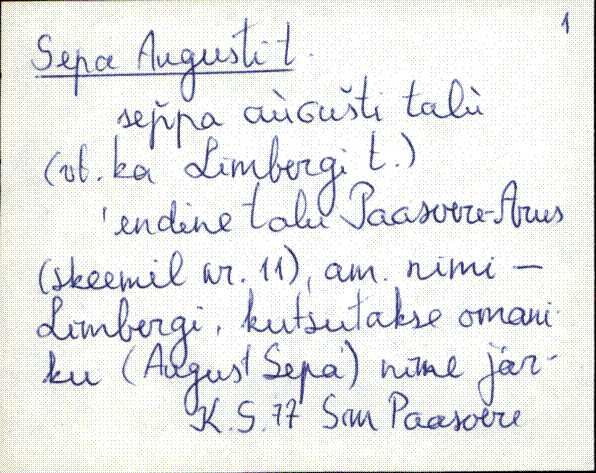 1
Sepa Augusti t.
sep̆pa aùGušti talù
(vt. ka Limbergi t.)
'endine talu Paasvere-Arus
(skeemil nr. 11), am. nimi –
Limbergi, kutsutakse omani-
ku (August Sepa) nime jär-
K.S. 77 Sim Paasvere